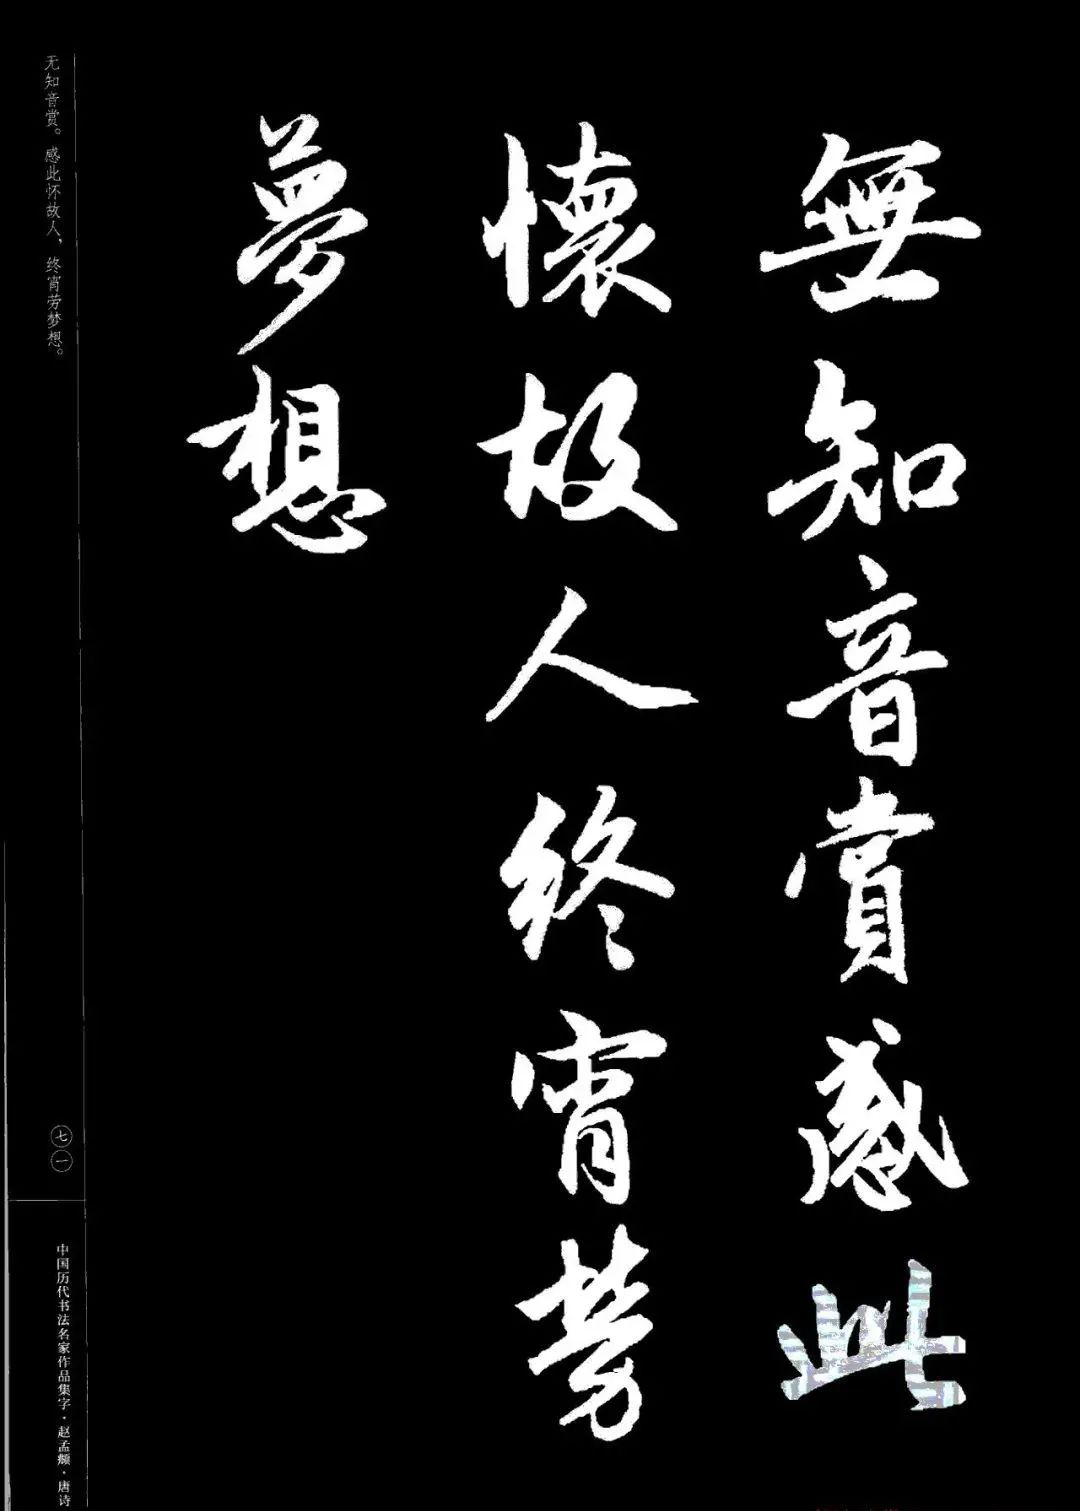 無知音賞感此
懷故人終宵劳
夢想
无知音赏。感此怀故人，终宵劳梦想。
七一
中国历代书法名家作品集字·赵孟頫·唐诗